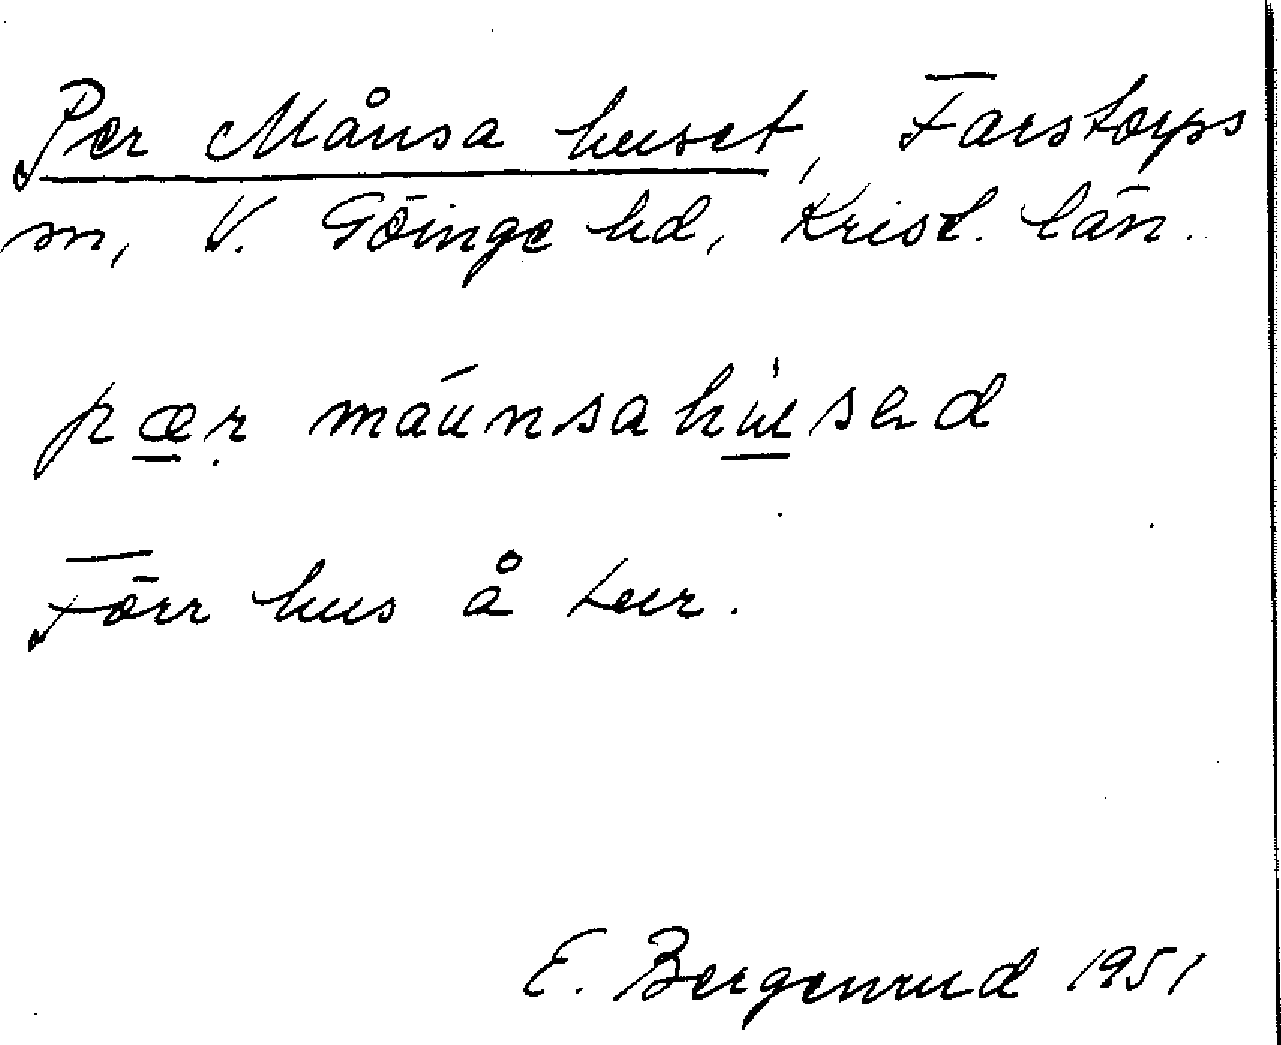 Per Månsa huset, Farstorps
sn, V. Göinge hd, Krist. län.
pær máunsahúsed
Förr hus å tur.
E. Bergenrud 1951